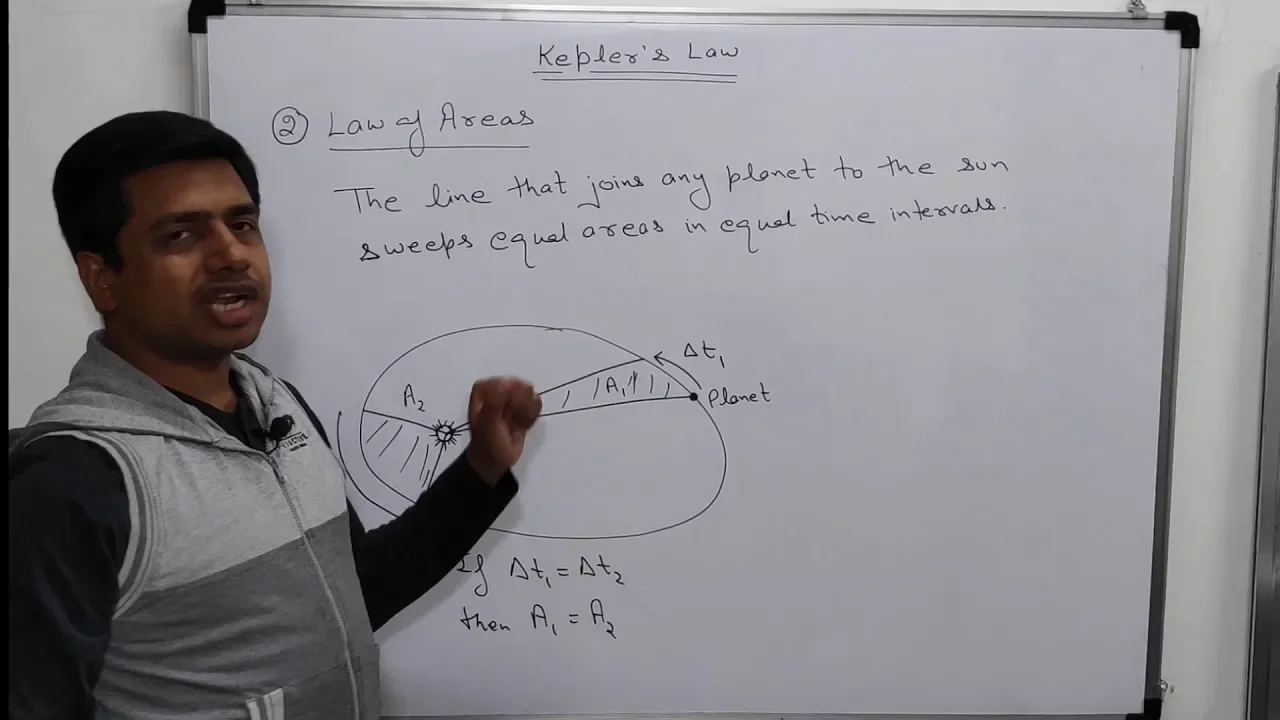 Kepler's Law
② Law of Areas
The line that joins any planet to the sun
sweeps equal areas in equal time intervals.
Δt₁
A₁
Planet
A₂
If Δt₁ = Δt₂
then A₁ = A₂